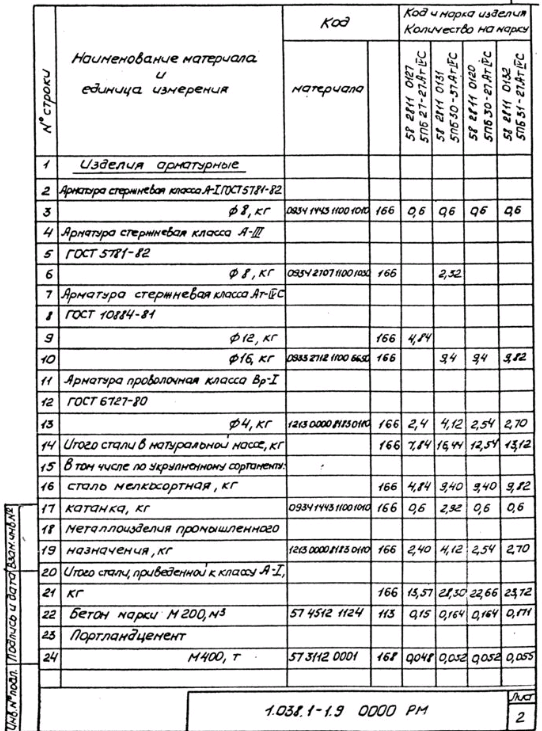 Код и марка изделия
Количество на марку
Код
Наименование материала
и
единица измерения
материала
№ строки
58 2811 0127
5ПБ 27-27АтIVС
58 2811 0131
5ПБ 30-37АтIVС
58 2811 0120
5ПБ 30-27АтIVС
58 2811 0132
5ПБ 31-27АтIVС
1 Изделия арматурные
2 Арматура стержневая класса А-I ГОСТ 5781-82
3 ϕ 8, кг 0934 1443 1100 1010 166 0,6 0,6 0,6 0,6
4 Арматура стержневая класса А-III
5 ГОСТ 5781-82
6 ϕ 8, кг 0934 2107 1100 1030 166 2,32
7 Арматура стержневая класса Ат-IVС
8 ГОСТ 10884-81
9 ϕ12, кг 166 4,84
10 ϕ16, кг 0935 2712 1100 166 9,4 9,4 9,82
11 Арматура проволочная класса Вр-I
12 ГОСТ 6727-80
13 ϕ4, кг 1213 0000 8183 0110 166 2,4 4,12 2,54 2,70
14 Итого стали в натуральной массе, кг 166 7,84 16,44 12,54 13,12
15 В том числе по укрупненному сортаменту:
16 сталь мелкосортная, кг 166 4,84 9,40 9,40 9,82
17 катанка, кг 0934 1443 1100 1010 166 0,6 2,92 0,6 0,6
18 металлоизделия промышленного
19 назначения, кг 1213 0000 8183 0110 166 2,40 4,12 2,54 2,70
20 Итого стали, приведенной к классу А-I,
21 кг 166 13,57 28,30 22,66 23,72
22 Бетон марки М 200, м³ 57 4512 1124 113 0,15 0,164 0,164 0,171
23 Портландцемент
24 М400, т 57 3112 0001 168 0,048 0,052 0,052 0,055
Инв. № подл. Подпись и дата Взам. инв. №
1.038.1-1.9 0000 РМ
Лист
2